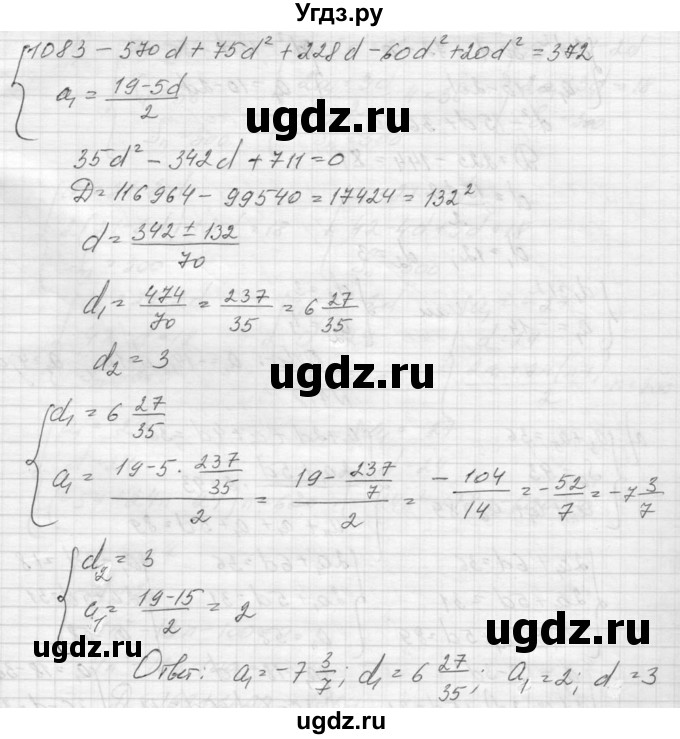 Угдз.ру
1083 − 570d + 75d² + 228d − 60d² + 20d² = 372
a₁ = (19−5d)/2
ugdz.ru ugdz.ru
35d² − 342d + 711 = 0
D = 116964 − 99540 = 17424 = 132²
d = (342 ± 132)/70
ugdz.ru
d₁ = 474/70 = 237/35 = 6 27/35
d₂ = 3
ugdz.ru
d₁ = 6 27/35
a₁ = (19−5·237/35)/2 = (19−237/7)/2 = −104/14 = −52/7 = −7 3/7
ugdz.ru
d₂ = 3
a₁ = (19−15)/2 = 2
ugdz.ru ugdz.ru
Ответ: a₁ = −7 3/7; d₁ = 6 27/35; a₁ = 2; d = 3
ugdz.ru